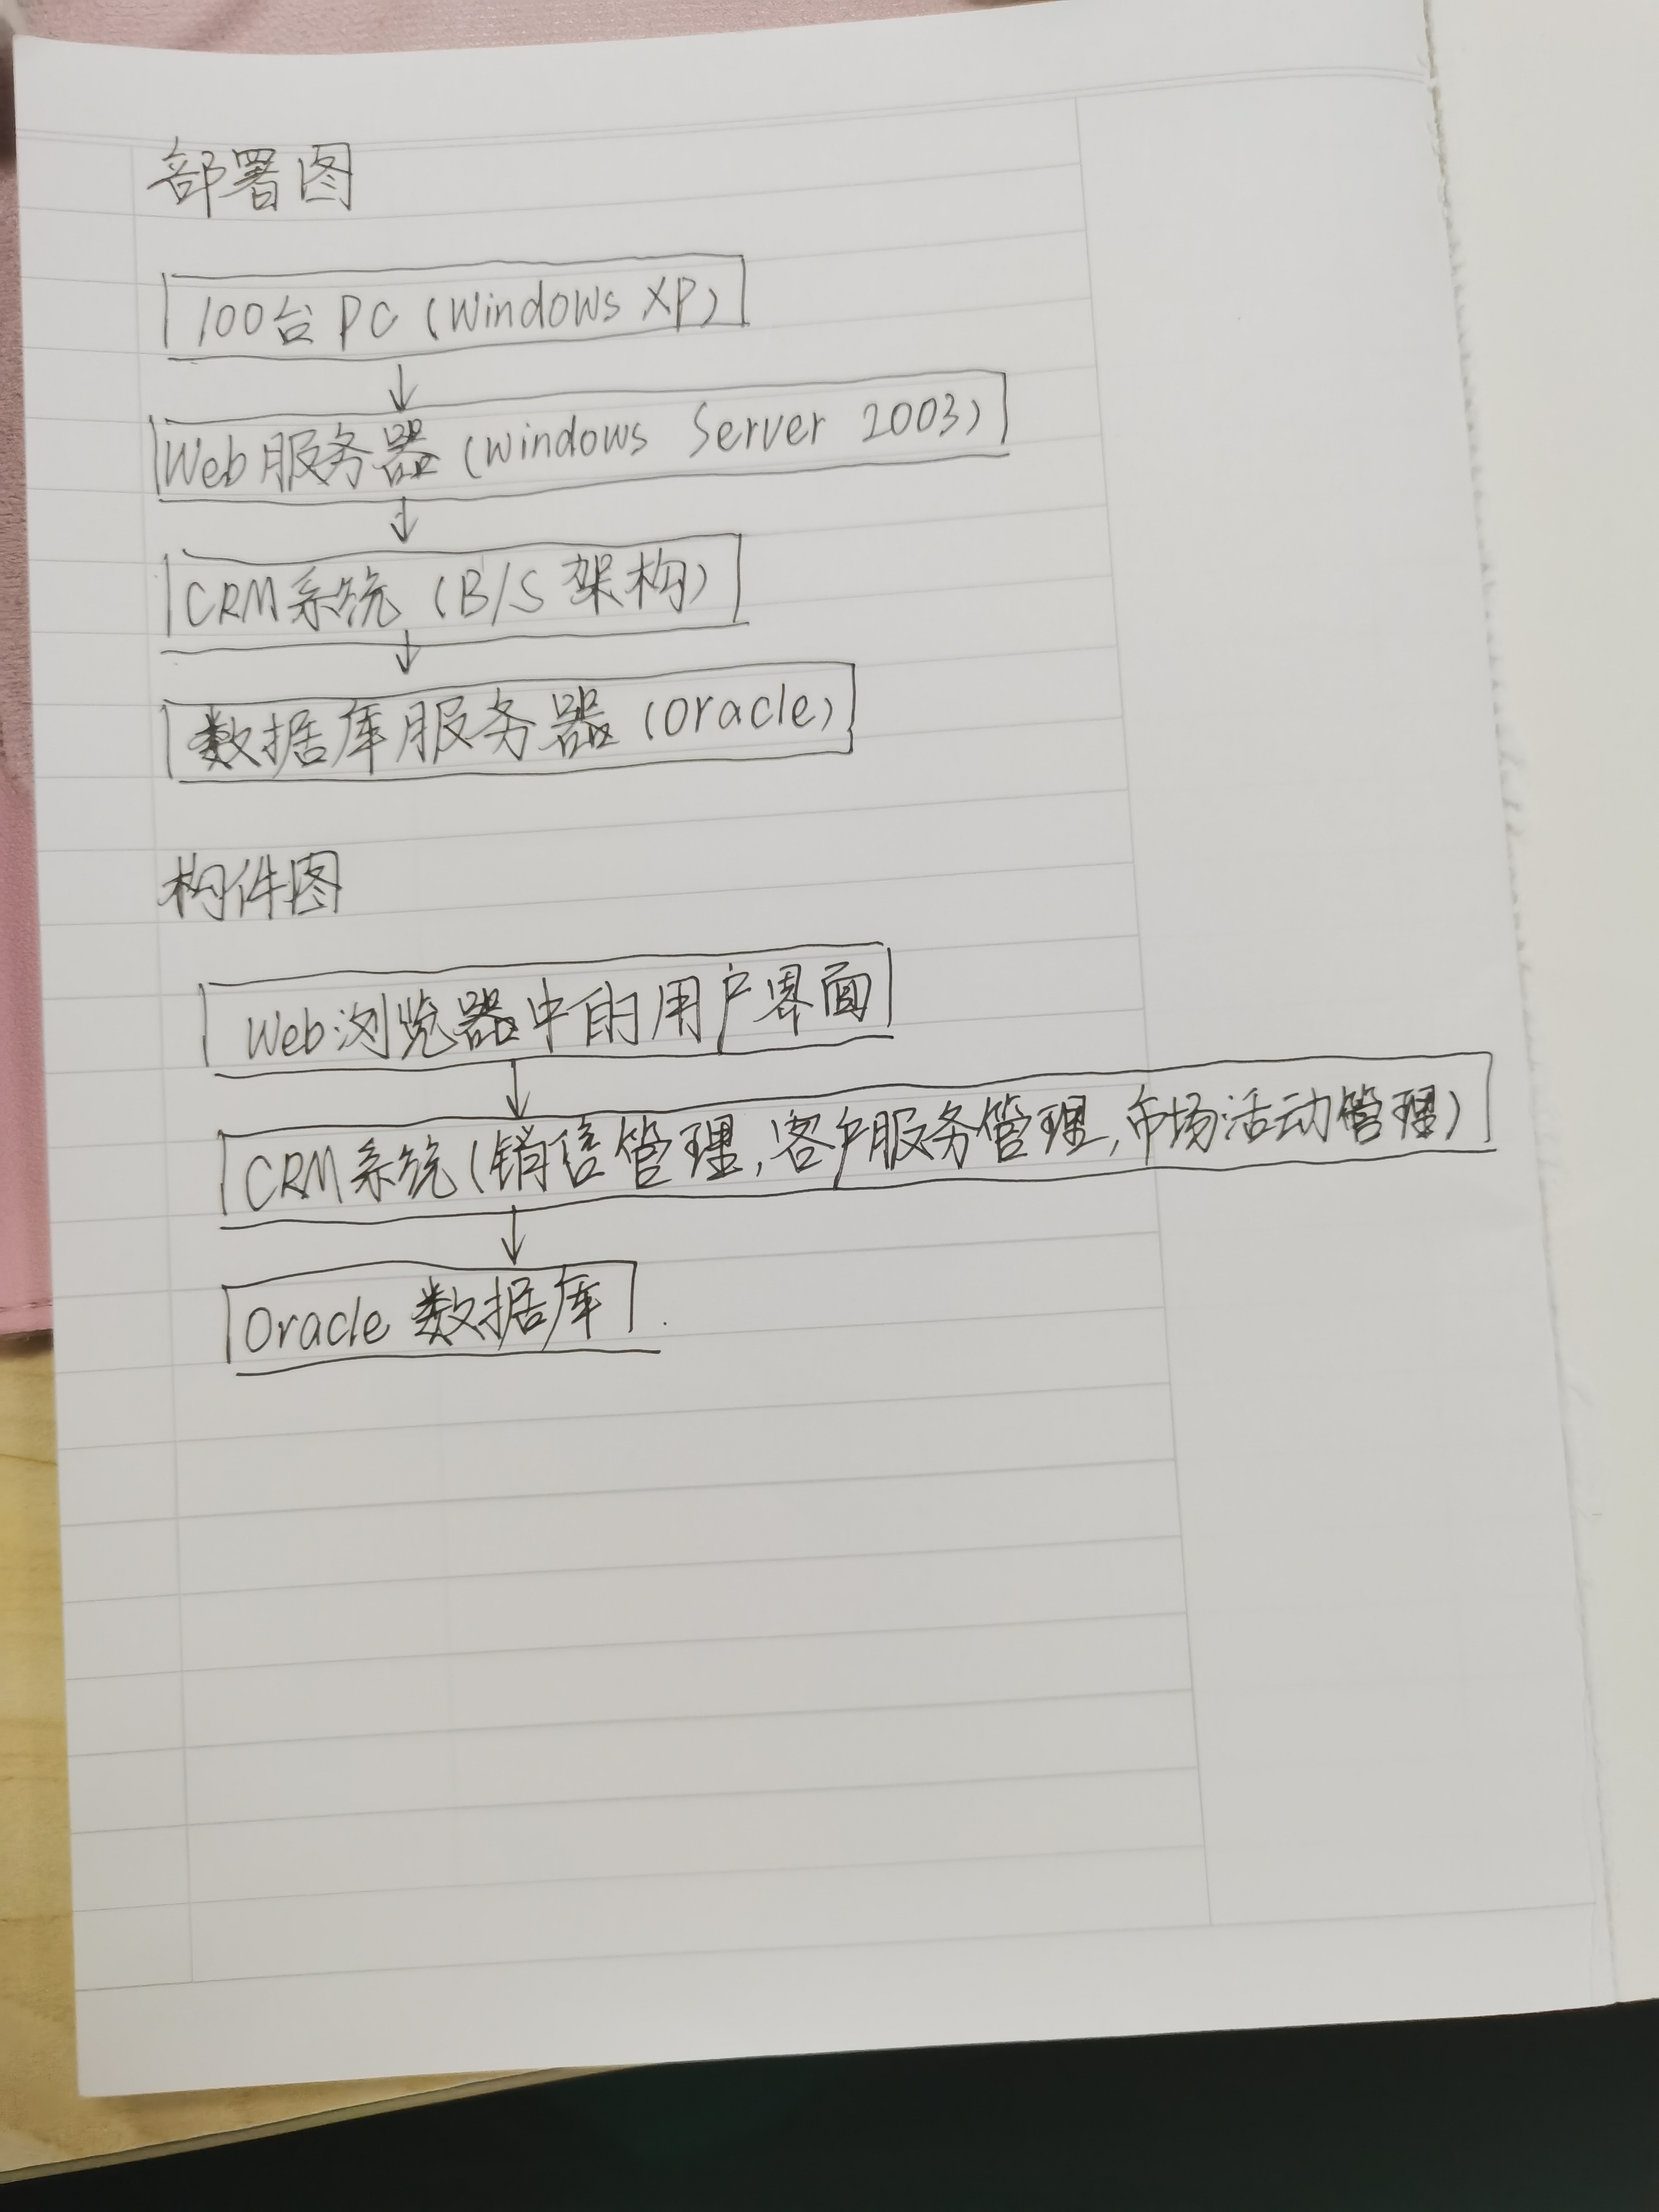 部署图
100台PC(Windows XP)
Web服务器(windows Server 2003)
CRM系统(B/S架构)
数据库服务器(Oracle)
构件图
Web浏览器中的用户界面
CRM系统(销售管理,客户服务管理,市场活动管理)
Oracle数据库